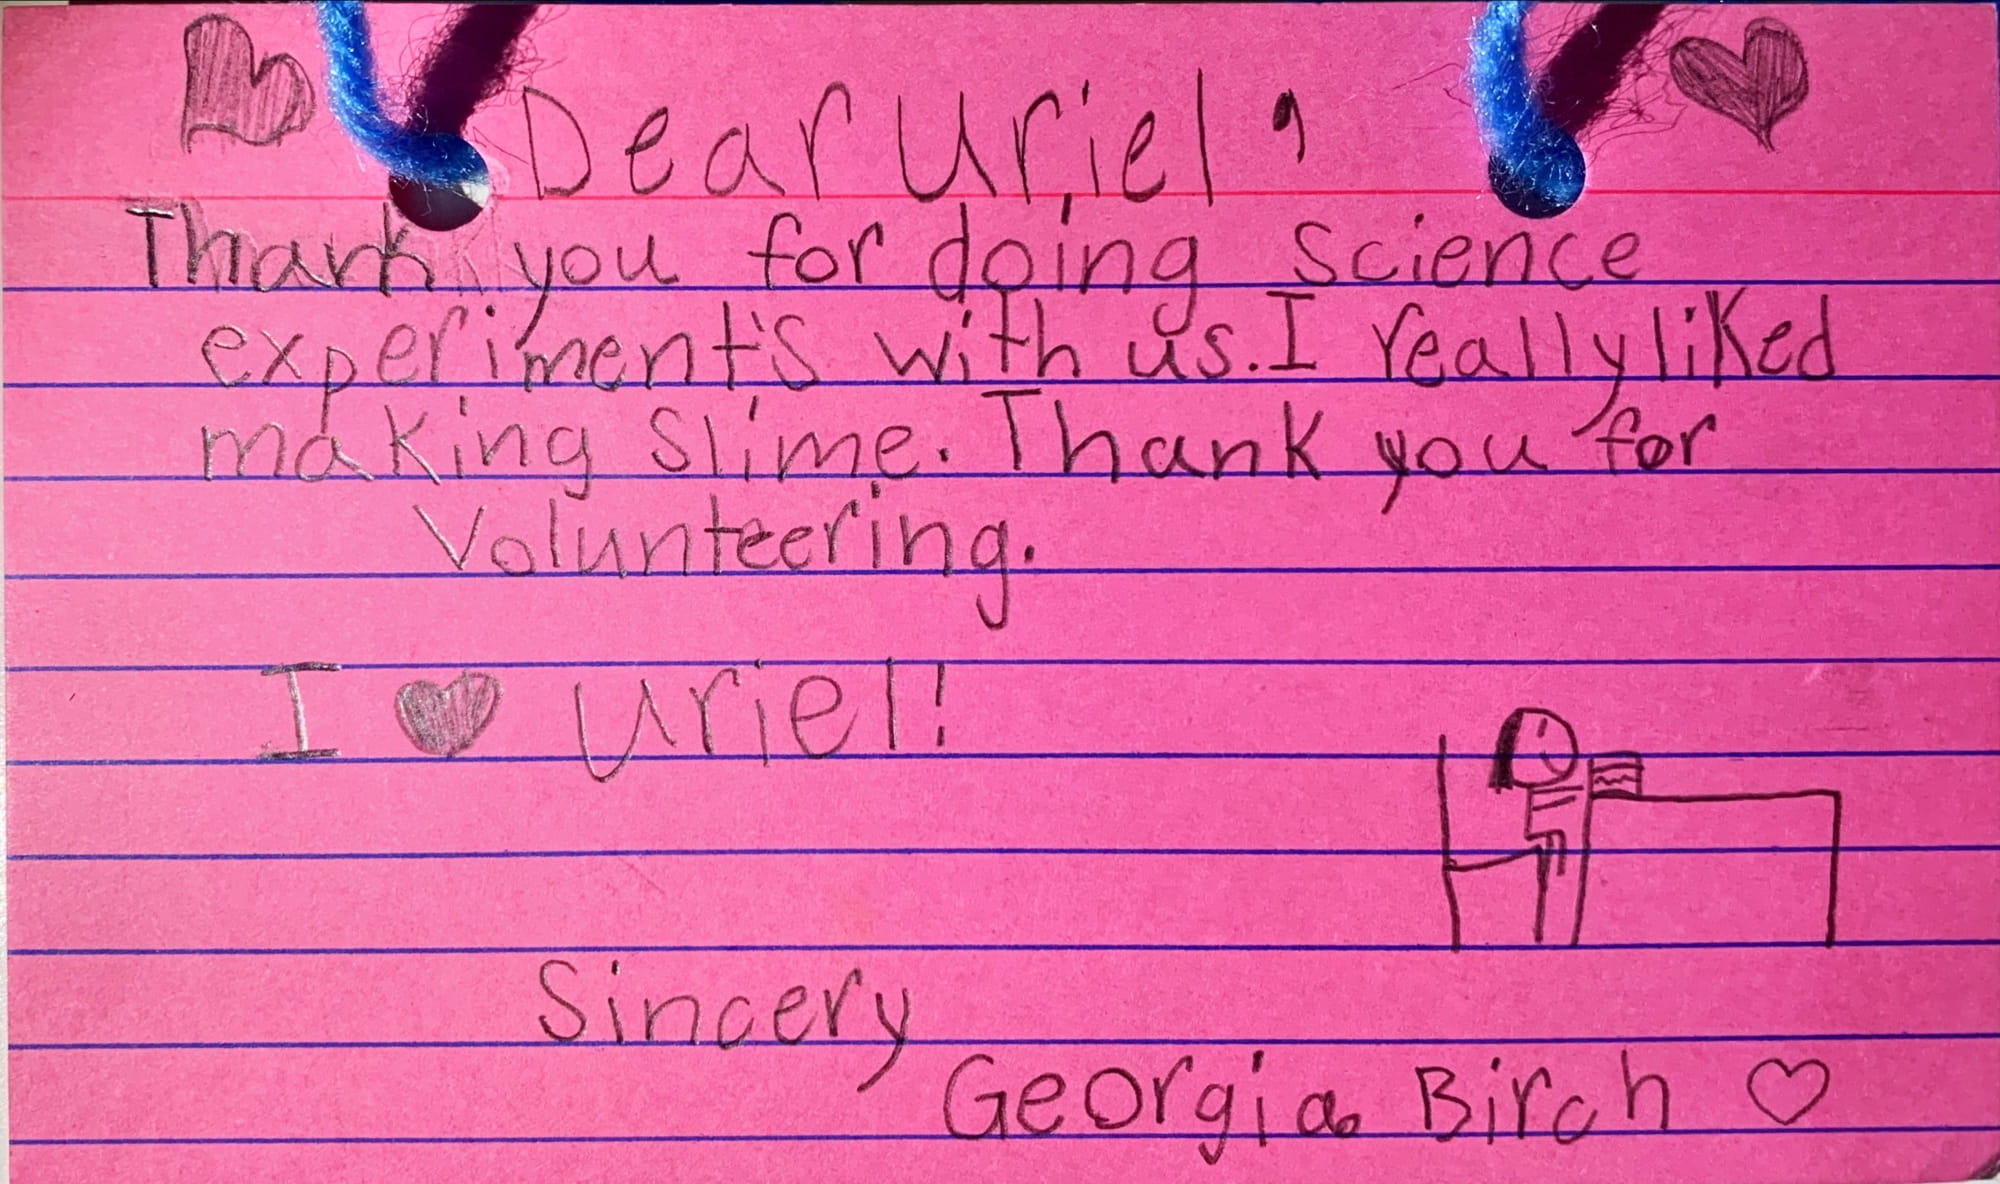 Dear Uriel,
Thank you for doing science
experiment's with us. I really liked
making Slime. Thank you for
Volunteering.
I ♥ Uriel!
Sincery
Georgia Birch ♡